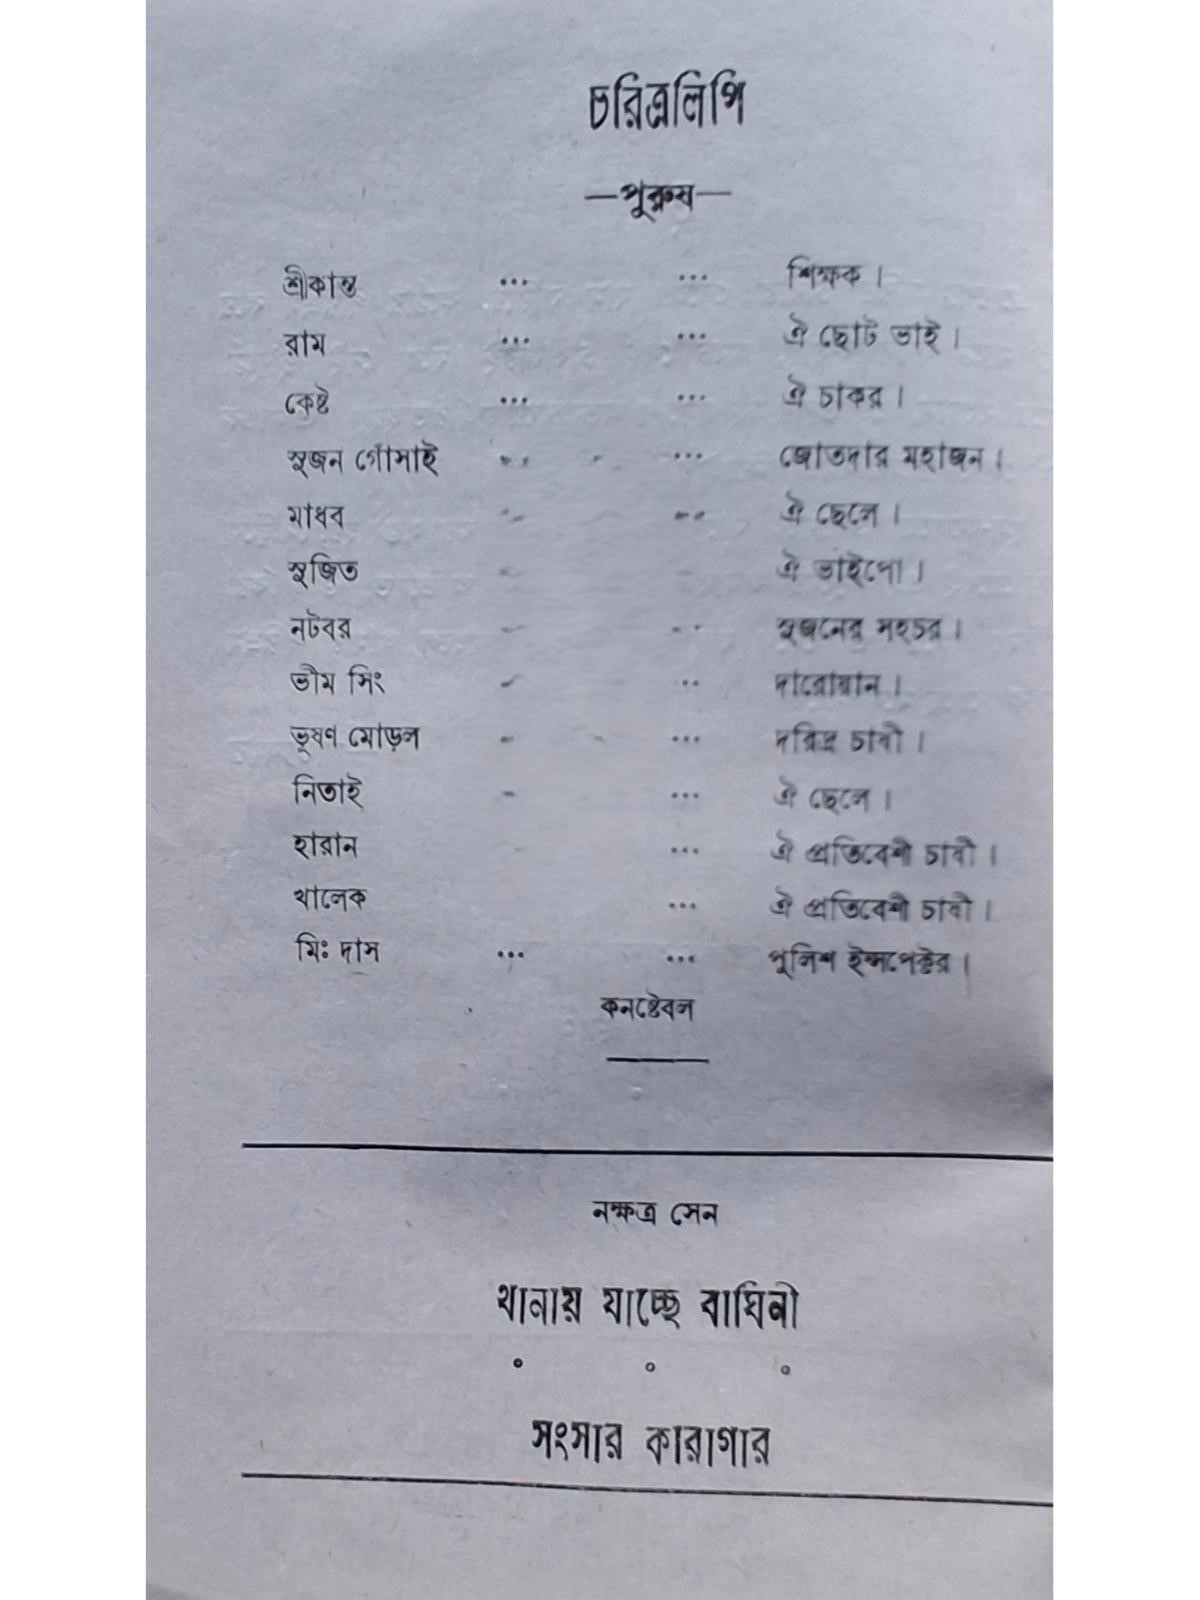 চরিত্রলিপি
—পুরুষ—
শ্রীকান্ত ... ... শিক্ষক ।
রাম ... ... ঐ ছোট ভাই ।
কেষ্ট ... ... ঐ চাকর ।
সুজন গোঁসাই ... ... জোতদার মহাজন ।
মাধব ... ... ঐ ছেলে ।
সুজিত ... ... ঐ ভাইপো ।
নটবর ... ... সুজনের সহচর ।
ভীম সিং ... ... দারোয়ান ।
ভূষণ মোড়ল ... ... দরিদ্র চাষী ।
নিতাই ... ... ঐ ছেলে ।
হারান ... ... ঐ প্রতিবেশী চাষী ।
খালেক ... ঐ প্রতিবেশী চাষী ।
মিঃ দাস ... ... পুলিশ ইন্সপেক্টর ।
কনষ্টেবল
নক্ষত্র সেন
থানায় যাচ্ছে বাঘিনী
সংসার কারাগার